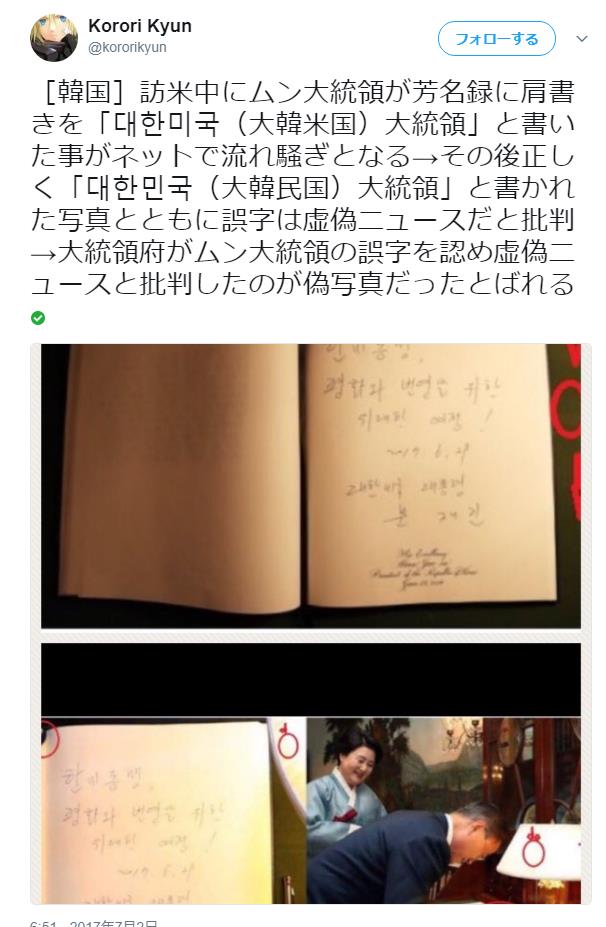 Korori Kyun
@kororikyun
フォローする
［韓国］訪米中にムン大統領が芳名録に肩書
きを「대한미국（大韓米国）大統領」と書い
た事がネットで流れ騒ぎとなる→その後正し
く「대한민국（大韓民国）大統領」と書かれ
た写真とともに誤字は虚偽ニュースだと批判
→大統領府がムン大統領の誤字を認め虚偽ニ
ュースと批判したのが偽写真だったとばれる
한미동맹,
평화와 번영을 위한
위대한 여정!
2017. 6. 29
대한미국 대통령
문재인
President of the Republic of Korea
한미동맹,
평화와 번영을 위한
위대한 여정!
2017. 6. 29
6:51 - 2017年7月2日